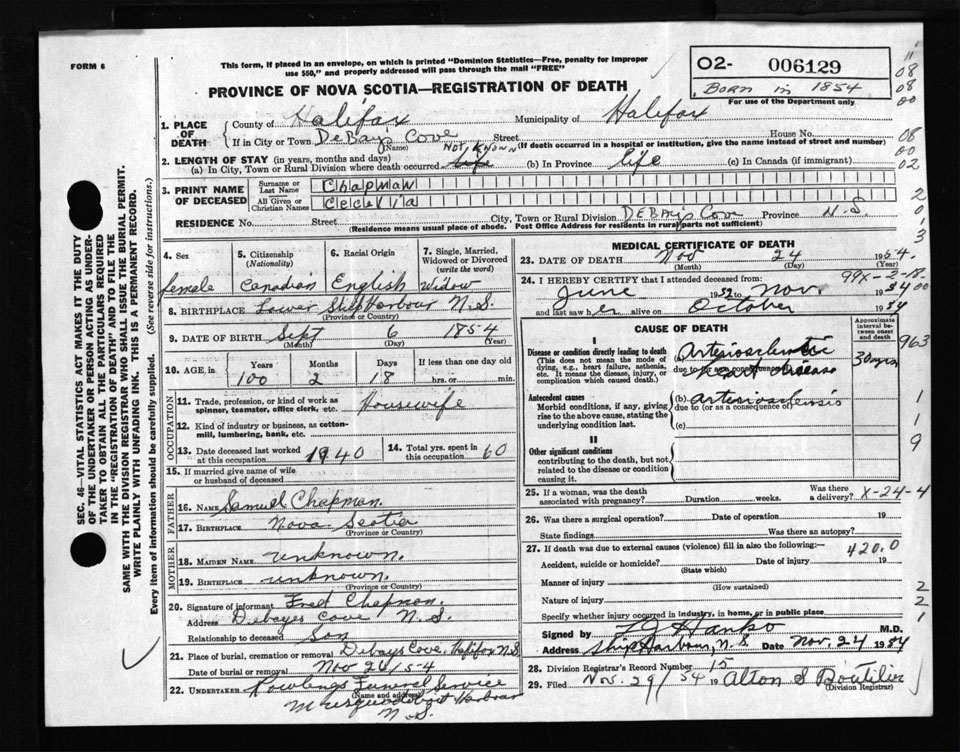 FORM 6
This form, if placed in an envelope, on which is printed "Dominion Statistics—Free, penalty for improper
use $50," and properly addressed will pass through the mail "FREE"
PROVINCE OF NOVA SCOTIA—REGISTRATION OF DEATH
02- 006129
Born in 1854
For use of the Department only
11
08
08
00
08
00
02
2
0
3
1. PLACE OF DEATH
County of Halifax Municipality of Halifax
If in City or Town DeBay's Cove Street House No.
(Name) (If death occurred in a hospital or institution, give the name instead of street and number)
2. LENGTH OF STAY (in years, months and days)
(a) In City, Town or Rural Division where death occurred Not Known (b) In Province life (c) In Canada (if immigrant)
3. PRINT NAME OF DECEASED
Surname or Last Name Chapman
All Given or Christian Names Cecelia
RESIDENCE No. Street City, Town or Rural Division DEBAy's Cove Province N.S.
(Residence means usual place of abode. Post Office Address for residents in rural parts not sufficient)
4. Sex
female
5. Citizenship (Nationality)
Canadian
6. Racial Origin
English
7. Single, Married, Widowed or Divorced (write the word)
Widow
8. BIRTHPLACE Lower Ship Harbour N.S.
(Province or Country)
9. DATE OF BIRTH Sept 6 1854
(Month) (Day) (Year)
10. AGE in Years Months Days If less than one day old
100 2 18 hrs. or min.
OCCUPATION
11. Trade, profession, or kind of work as spinner, teamster, office clerk, etc. Housewife
12. Kind of industry or business, as cotton-mill, lumbering, bank, etc.
13. Date deceased last worked at this occupation 1940
14. Total yrs. spent in this occupation 60
15. If married give name of wife or husband of deceased
FATHER
16. NAME Samuel Chapman
17. BIRTHPLACE Nova Scotia
(Province or Country)
MOTHER
18. MAIDEN NAME unknown.
19. BIRTHPLACE unknown.
(Province or Country)
20. Signature of informant Fred Chapman.
Address Debayes Cove N.S.
Relationship to deceased Son
21. Place of burial, cremation or removal Debays Cove, Halifax N.S.
Date of burial or removal Nov 26/54
22. UNDERTAKER Rowlings Funeral Service
(Name and address)
Musquodoboit Harbour
N.S.
MEDICAL CERTIFICATE OF DEATH
23. DATE OF DEATH Nov 24 1954.
(Month) (Day) (Year)
24. I HEREBY CERTIFY that I attended deceased from:
99X-2-18
00
June 1952 to Nov. 1954
and last saw her alive on October 1954
CAUSE OF DEATH
Approximate interval between onset and death
963
I
Disease or condition directly leading to death
(This does not mean the mode of dying, e.g., heart failure, asthenia, etc. It means the disease, injury, or complication which caused death.)
(a) Arteriosclerotic heart disease 30 years
due to (or as a consequence of)
Antecedent causes
Morbid conditions, if any, giving rise to the above cause, stating the underlying condition last.
(b) arteriosclerosis
due to (or as a consequence of)
(c)
1
1
9
II
Other significant conditions
contributing to the death, but not related to the disease or condition causing it.
25. If a woman, was the death associated with pregnancy? Duration weeks. Was there a delivery? X-24-4
26. Was there a surgical operation? Date of operation 19
State findings Was there an autopsy?
27. If death was due to external causes (violence) fill in also the following:—
420.0
Accident, suicide or homicide? Date of injury 19
(State which)
Manner of injury
(How sustained)
Nature of injury
Specify whether injury occurred in industry, in home, or in public place
2
2
1
Signed by Hanko M.D.
Address Ship Harbour, N.S Date Nov. 24 1954
28. Division Registrar's Record Number 15
29. Filed Nov. 29/54 19 Alton S Boutilier
(Division Registrar)
SEC. 46—VITAL STATISTICS ACT MAKES IT THE DUTY
OF THE UNDERTAKER OR PERSON ACTING AS UNDER-
TAKER TO OBTAIN ALL THE PARTICULARS REQUIRED
IN THE "REGISTRATION OF DEATH" AND TO FILE THE
SAME WITH THE DIVISION REGISTRAR WHO SHALL ISSUE THE BURIAL PERMIT.
WRITE PLAINLY WITH UNFADING INK. THIS IS A PERMANENT RECORD.
Every item of information should be carefully supplied. (See reverse side for instructions.)